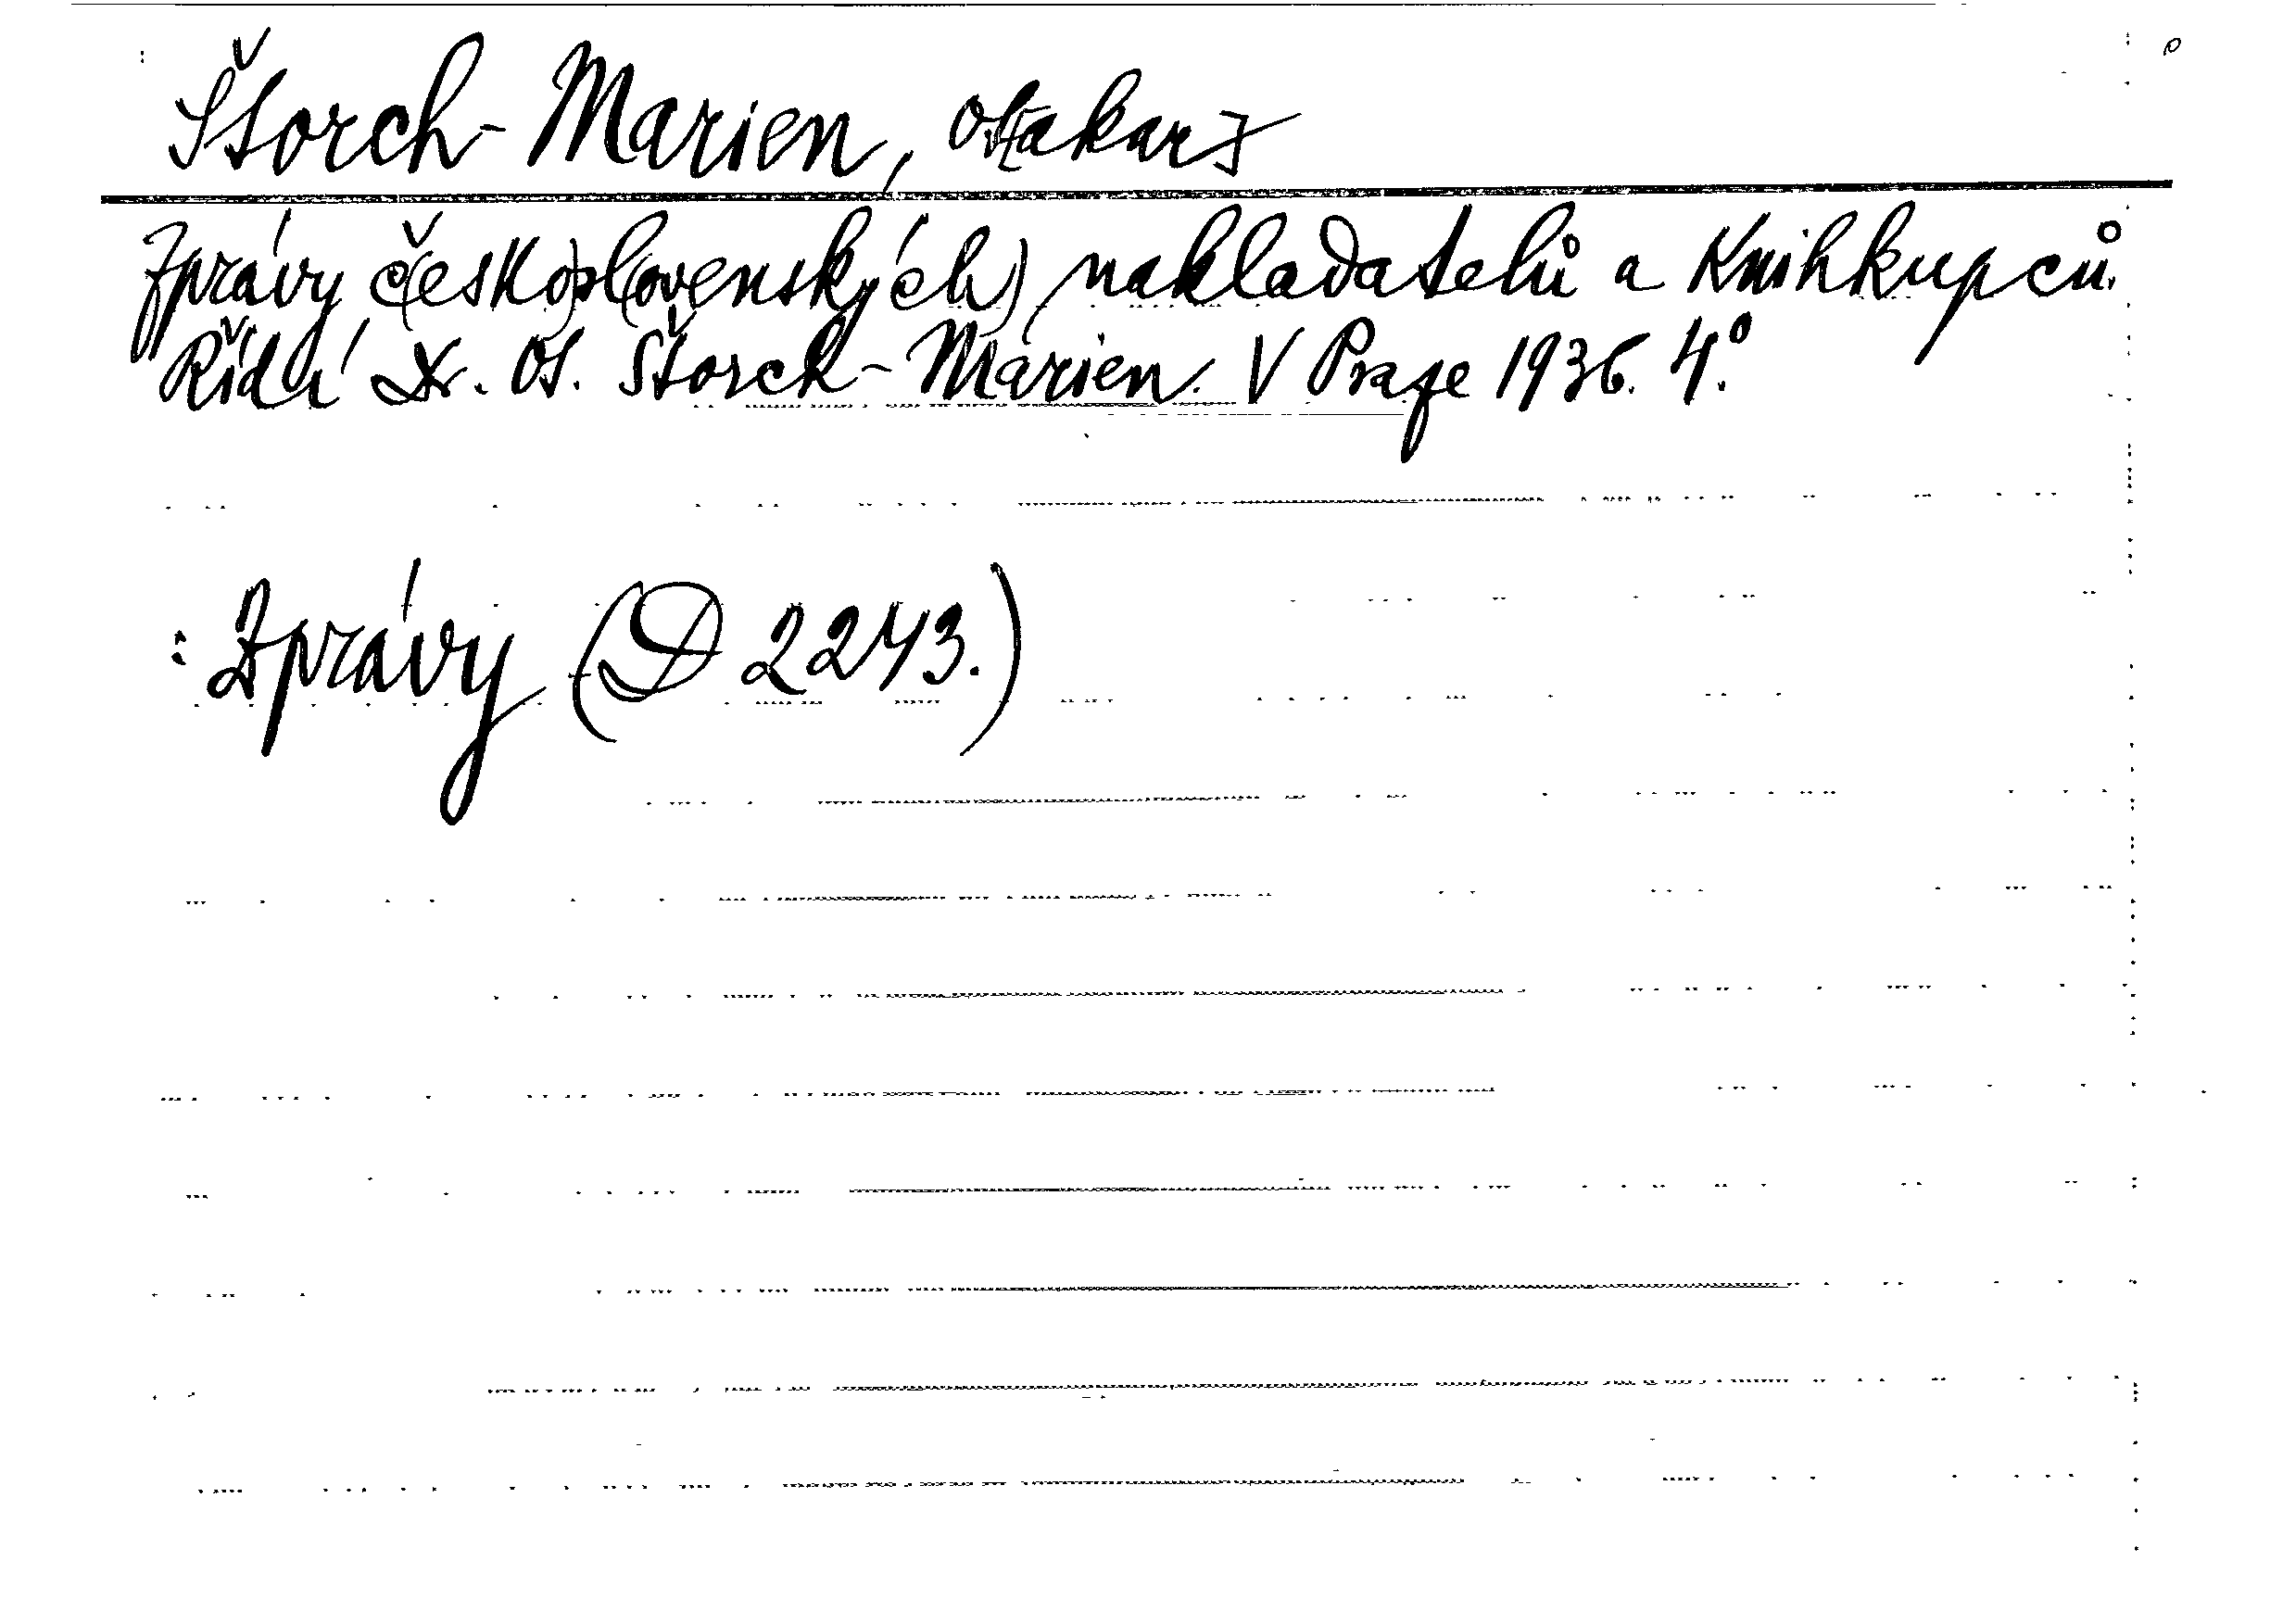 Štorch-Marien, Ot[akar]
Zprávy č(esko)sl(ovenských) nakladatelů a knihkupců.
Řídí Dr. Ot. Štorch-Marien. V Praze 1936. 4.°
: Zprávy (D 2243.)